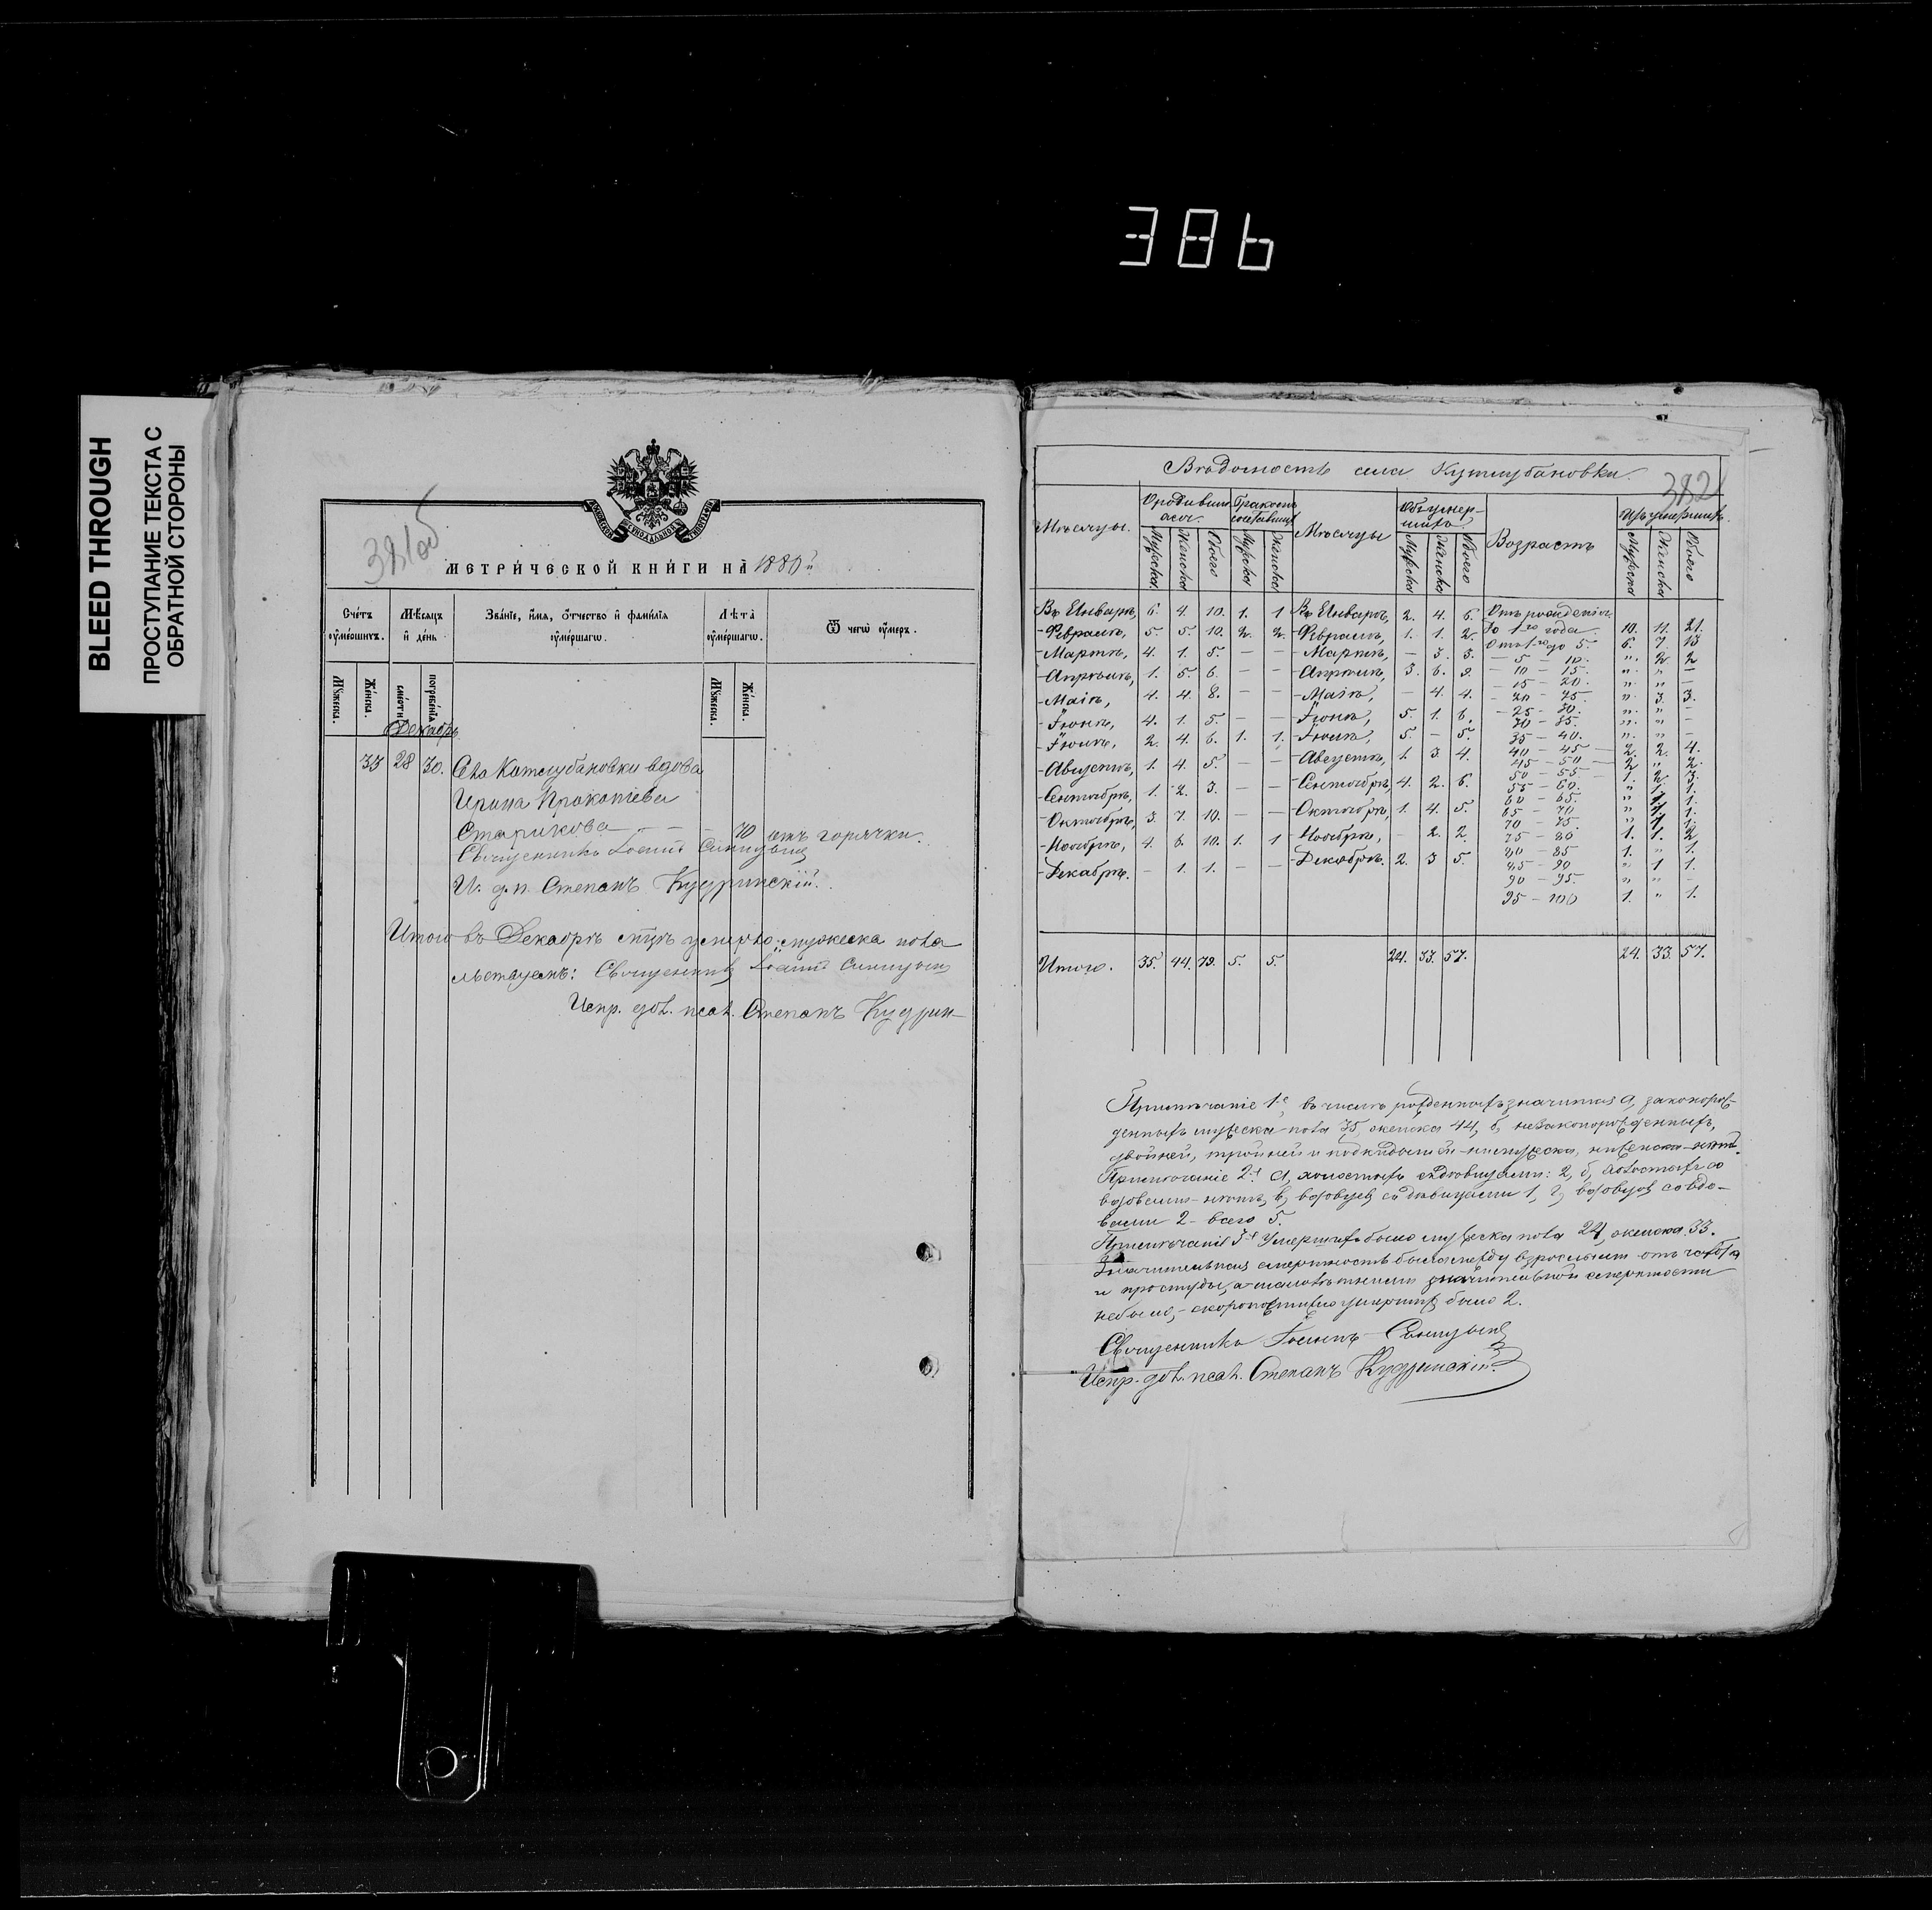 386
BLEED THROUGH
ПРОСТУПАНИЕ ТЕКСТА С
ОБРАТНОЙ СТОРОНЫ
381об
МЕТРИ́ЧЕСКОЙ КНИ́ГИ НА 1880й
Сче́тъ ᲂумершихъ.
Мѣсяцъ и де́нь
Зва́нїе, и́мя, о́тчество и фами́лїя ᲂуме́ршагѡ.
Лѣта̀ ᲂуме́ршагѡ.
Ѿ чегѡ̀ ᲂу́меръ.
Мꙋжеска. Же́нска. сме́рти погребе́нїя Мꙋжеска. Же́нска.
Декабрь
33 28 30. Села Котлубановки вдова
Ирина Прокопіева
Старикова 70 отъ горячки.
Священникъ Іоаннъ Синицынъ
И. д. п. Степанъ Кудринскій.
Итого въ Декабрѣ умерло: мужеска пола
Священникъ Іоаннъ Синицынъ
Испр. дол. псал. Степанъ Кудрин-
Вѣдомость села Кутлубановки.
382
Мѣсяцы. О родившихся. Браковъ Мѣсяцы Объ умершихъ. Возрастъ Изъ умершихъ.
Мужеска Женска Обоего Мужеска Женска Мужеска Женска Обоего Мужеска Женска Обоего
Въ Январѣ, 6. 4. 10. 1. 1 Въ Январѣ, 2. 4. 6. Отъ рожденія
до 1го года 10. 11. 21.
- Февралѣ, 5. 5. 10. 2. 2. - Февралѣ, 1. 1. 2. Отъ 1го до 5. 6. 7. 13
- Мартѣ, 4. 1. 5. — — - Мартѣ, — 3. 3. — 5 — 10. „ 2. 2
- Апрѣлѣ, 1. 5. 6. — — - Апрѣлѣ, 3. 6. 9. — 10 — 15. „ „ —
— 15 — 20. „ „ —
- Маіѣ, 4. 4. 8. — — - Маіѣ, — 4. 4. — 20 — 25 „ 3. 3.
— 25 — 30. „ „ —
- Іюнѣ, 4. 1. 5. — — - Іюнѣ, 5. 1. 6. 30 — 35. „ „ —
- Іюлѣ, 2. 4. 6. 1. 1. - Іюлѣ, 5. — 5. 35 — 40. „ „ —
40 — 45 — 2. 2. 4.
- Августѣ, 1. 4. 5. — — - Августѣ, 1. 3 4. 45 — 50 — 2 „ 2.
50 — 55 — 1. 2. 3.
- Сентябрѣ, 1. 2. 3. — — - Сентябрѣ, 4. 2. 6. 55 — 60. „ 1. 1.
60 — 65. „ 1. 1.
- Октябрѣ, 3. 7. 10. — — - Октябрѣ, 1. 4. 5. 65 — 70 „ 1. 1.
70 — 75. „ 1. 1.
- Ноябрѣ, 4. 6. 10. 1. 1 - Ноябрѣ, — 2. 2. 75 — 80. 1. 1. 2
80 — 85 1. „ 1.
- Декабрѣ. — 1. 1. — — - Декабрѣ. 2. 3 5. 85 — 90 „ 1 1.
90 — 95. „ „ —
95 — 100 1. „ 1.
Итого. 35. 44. 79. 5. 5. 24. 33. 57. 24. 33. 57.
Примѣчаніе 1е, въ числѣ рожденныхъ значится а, законорож-
денныхъ мужеска пола 35, женска 44, б, незаконорожденныхъ,
двойней, тройней и подкидышей ни мужеска, ни женска - нѣтъ.
Примѣчаніе 2е а, холостыхъ съ дѣвицами: 2, б, холостыхъ со
вдовами - нѣтъ, в, вдовцевъ съ дѣвицами 1, г, вдовцевъ со вдо-
вами 2 - всего 5.
Примѣчаніе 3е Умершихъ было мужеска пола 24, женска 33.
Значительная смертность была между взрослыми отъ
и простуды, а малолѣтними значительной смертности
небыло, - скоропостижно умершихъ было 2.
Священникъ Іоаннъ Синицынъ
Испр. дол. псал. Степанъ Кудринскій.